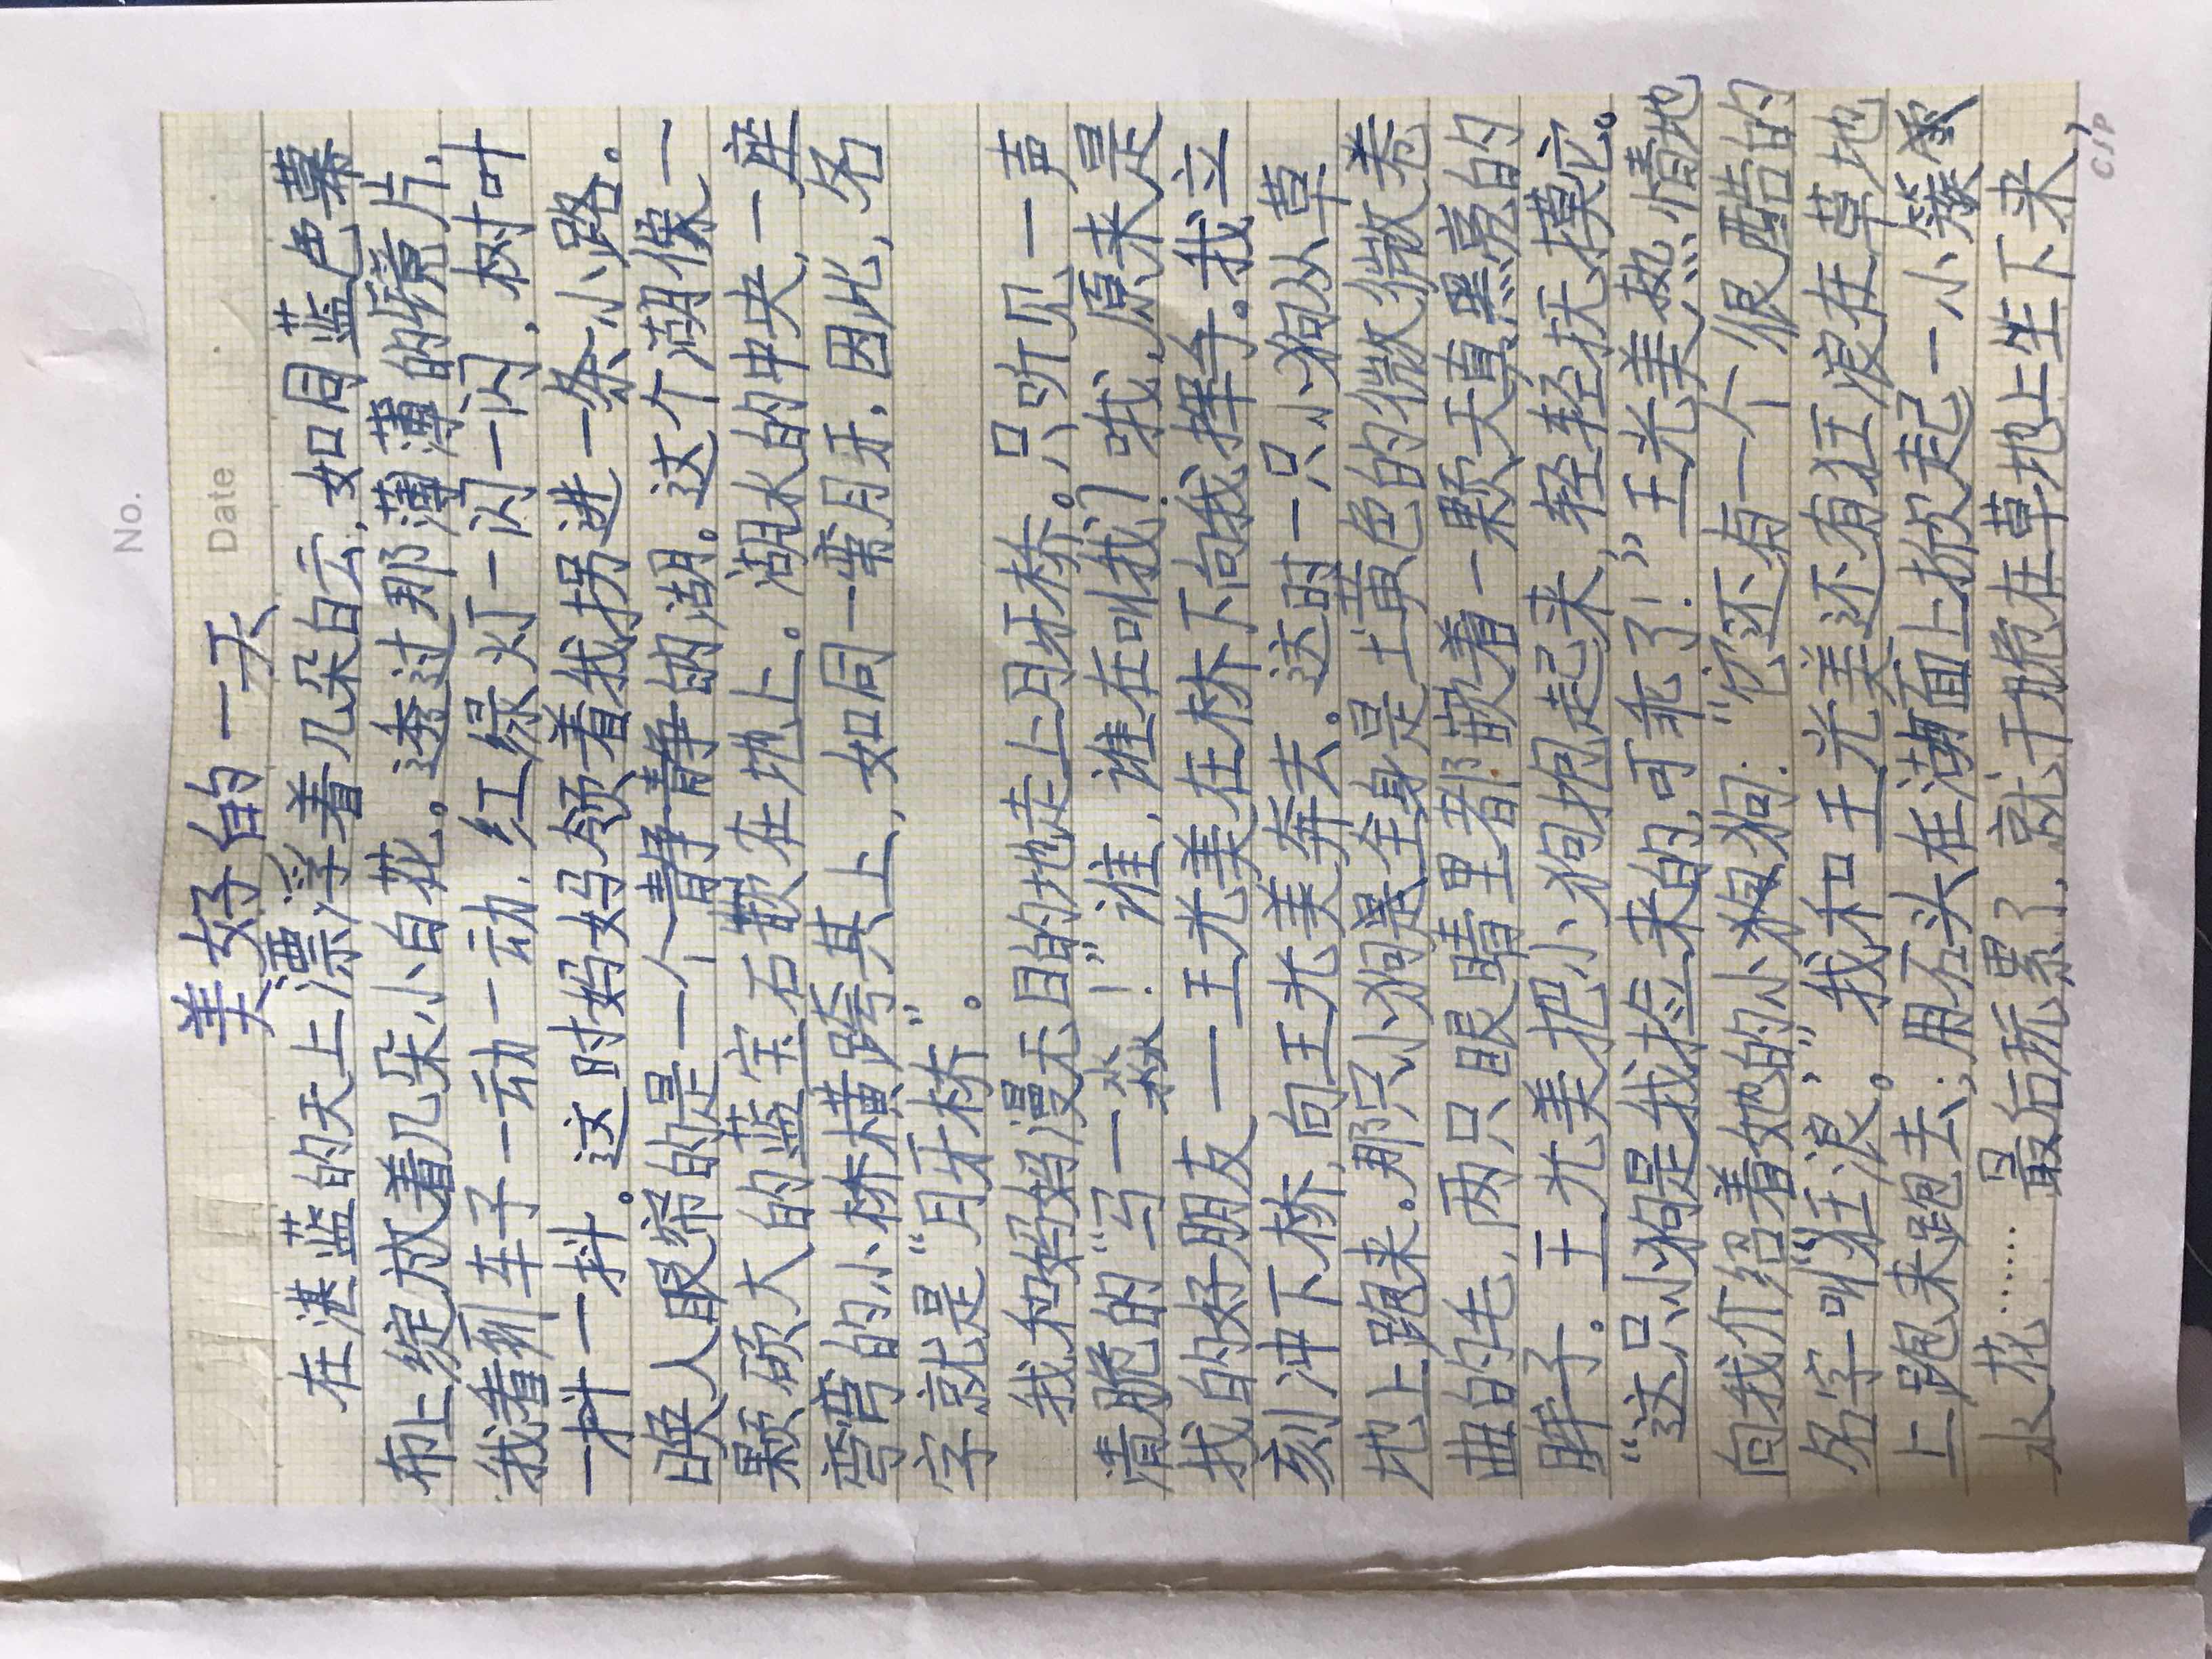 No.
Date
美好的一天
在湛蓝的天上漂浮着几朵白云，如同蓝色幕
布上绽放着几朵小白花。透过那薄薄的镜片，
我看到车子一动一动，红绿灯一闪一闪，树叶
一抖一抖。这时妈妈领着我拐进一条小路。
映入眼帘的是一个静静的湖。这个湖像一
颗硕大的蓝宝石嵌在地上。湖水的中央，一座
弯弯的小桥横跨其上，如同一弯月牙，因此，名
字就是“月牙桥”。
我和妈妈漫无目的地走上月牙桥。只听见一声
清脆的“马一淼！”谁，谁在叫我？哦，原来是
我的好朋友——王光美在桥下向我挥手。我立
刻冲下桥，向王光美奔去。这时一只小狗从草
地上跑来。那只小狗是全身是土黄色的微微卷
曲的毛，两只眼睛里都嵌着一颗天真黑亮的
眸子。王光美把小狗抱起来，轻轻抚摸它。
“这只小狗是我捡来的，可乖了！”王光美热情地
向我介绍着她的小狗狗：“它还有一个很酷的
名字叫‘狂浪’。”我和王光美还有狂浪在草地
上跑来跑去；用石头在湖面上掀起一小簇
水花……最后玩累了，就干脆在草地上坐下来，
CJP